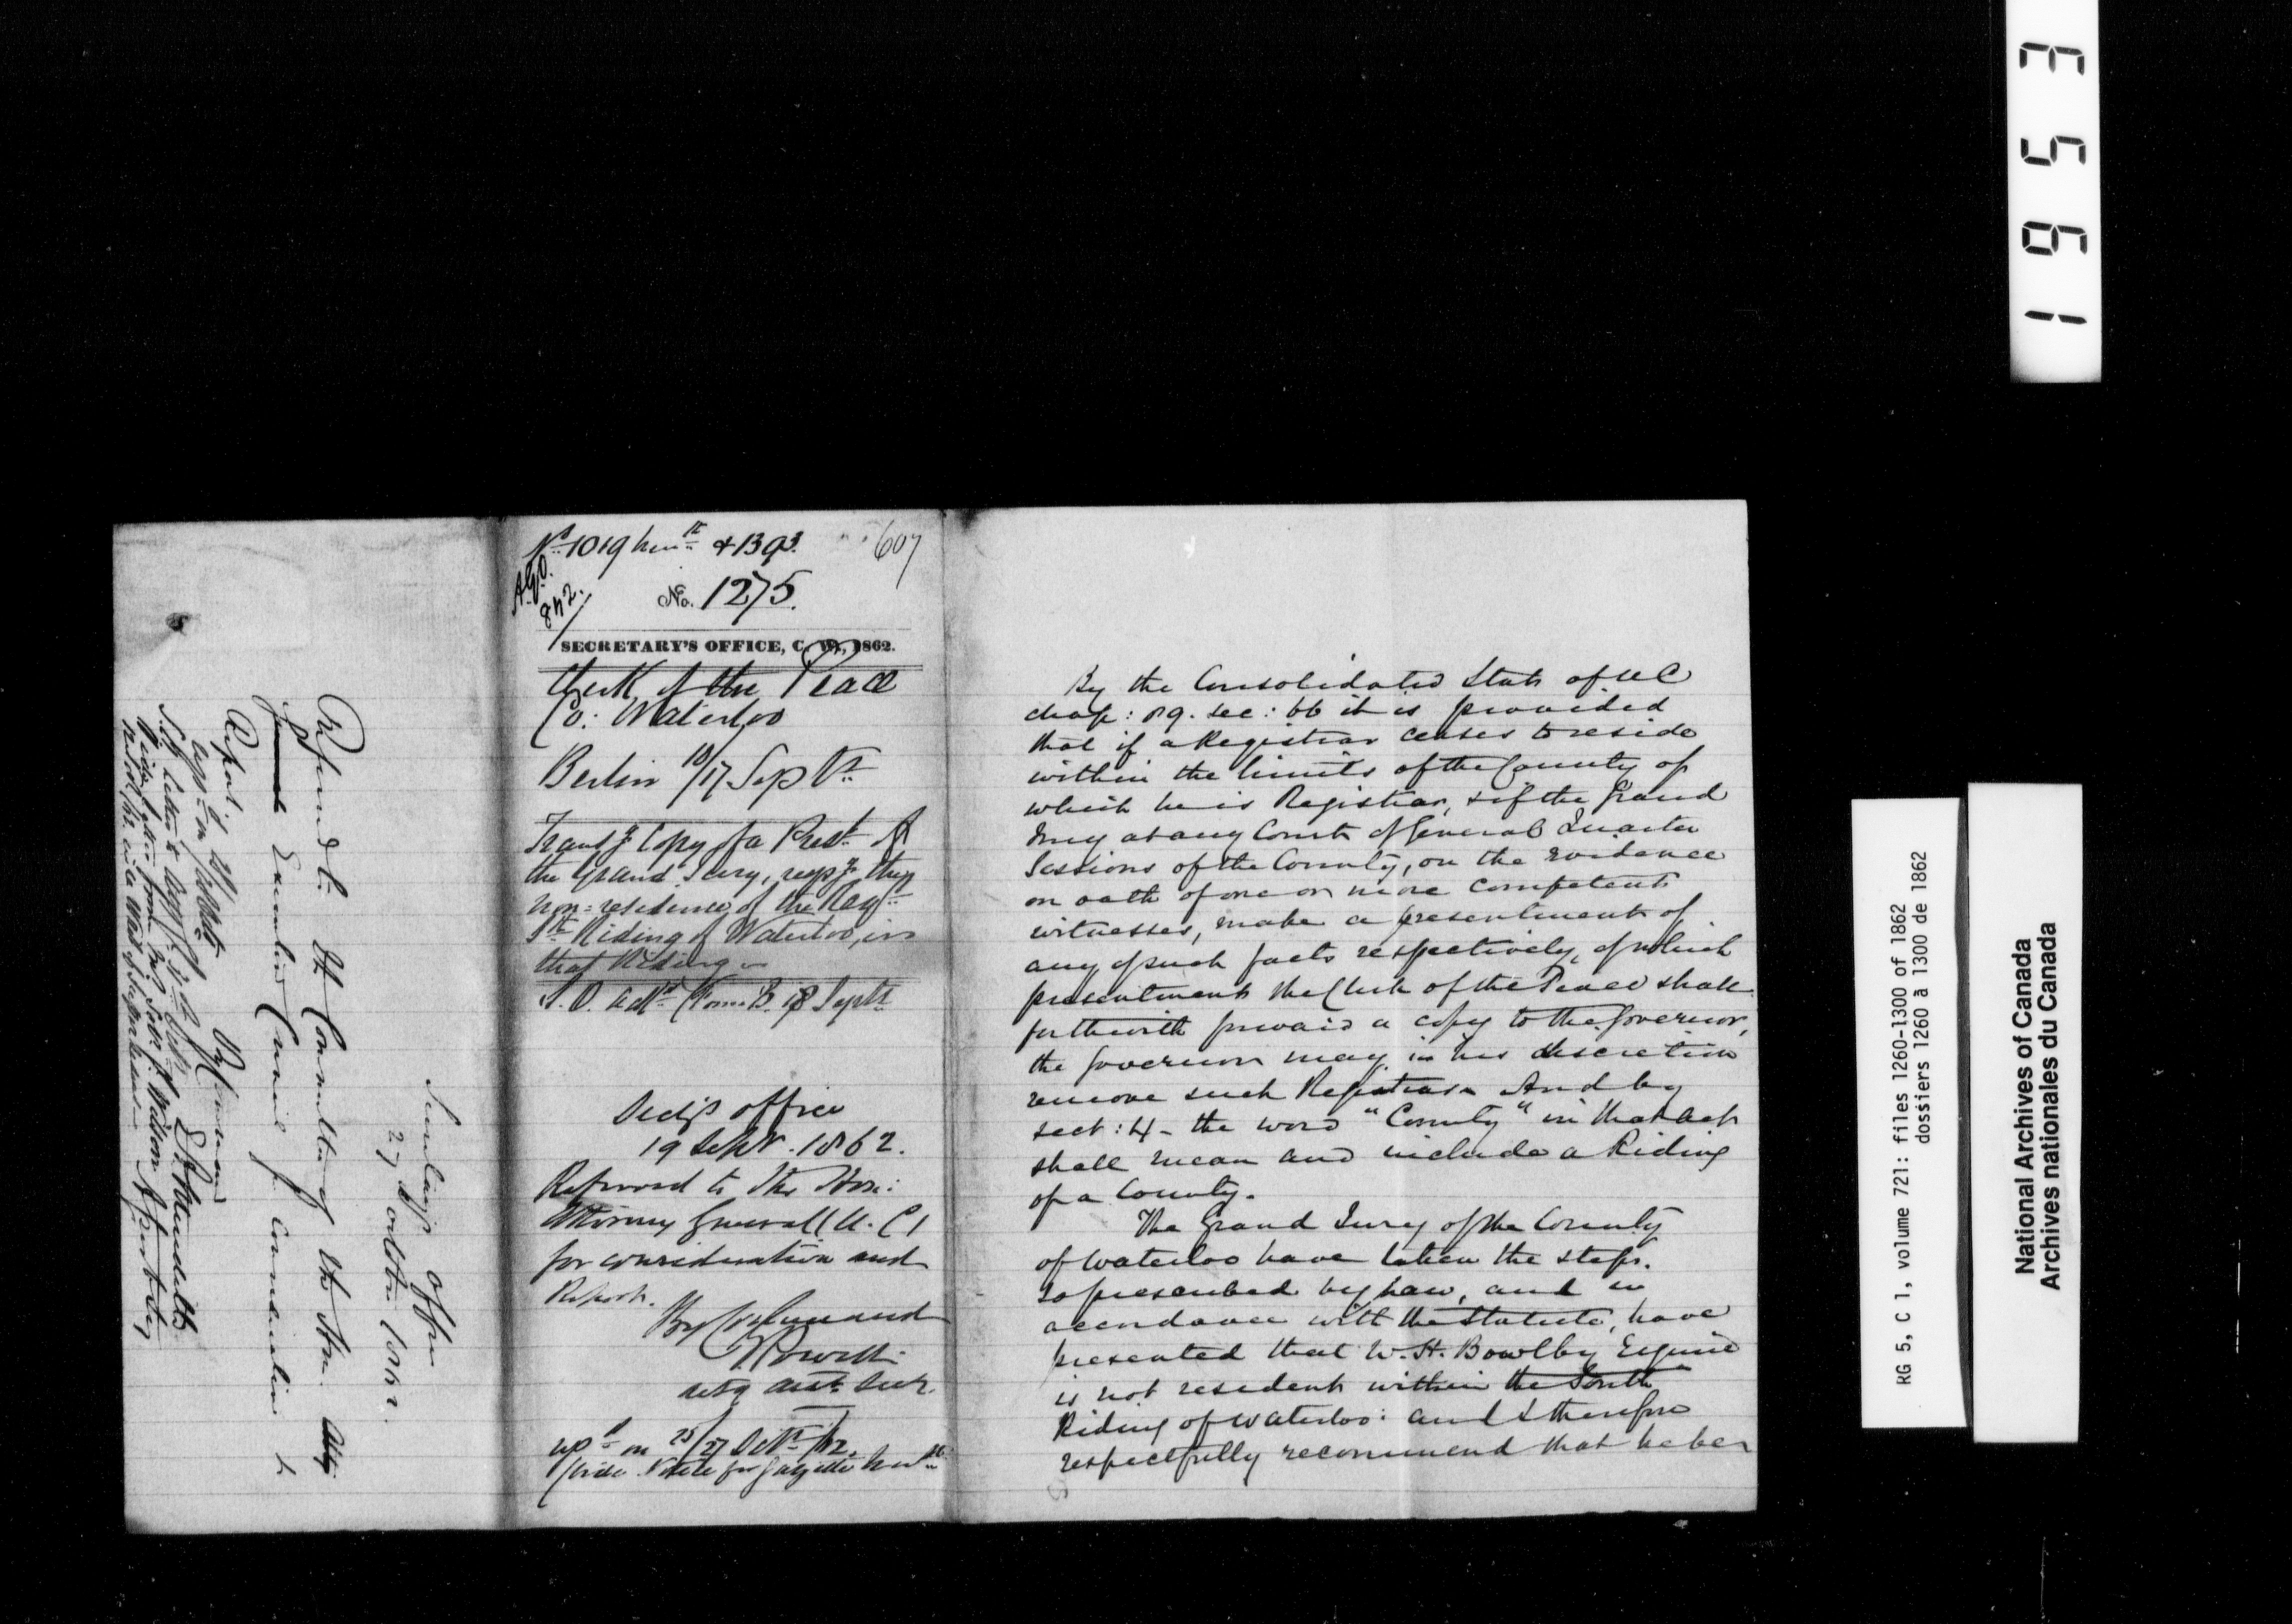 No. 1019 + 1393.
607
A.G.O.
842.
No. 1275.
SECRETARY'S OFFICE, C. W., 1862.
Clerk of the Peace
Co: Waterloo
Berlin 10/17 Sept
Transg Copy of a Prest of
the Grand Jury, respg the
non=residence of the Regr
Sth Riding of Waterloo, in
that Riding
18 Septr
Secy's office
19 Septr. 1862.
Referred to the Hon:
Attorney General (U. C)
for consideration and
Report.
By Command
asst Secr.
By the Consolidated Stats of U C
chap: 89. sec: 66 it is provided
that if a Registrar ceases to reside
within the limits of the County of
which he is Registrar, & if the Grand
Jury at any Court of General Quarter
Sessions of the County, on the evidence
on oath of one or more competent
witnesses, make a presentment of
any of such facts respectively, of which
presentment the Clerk of the Peace shall
forthwith forward a copy to the Governor,
the Governor may in his discretion
remove such Registrar And by
sect: 4 - the word "County" in that act
shall mean and include a Riding
of a County.
The Grand Jury of the County
of Waterloo have taken the steps
so prescribed by law, and in
accordance with the Statute, have
presented that W. H. Bowlby Esquire
is not resident within the South
Riding of Waterloo: and I therefore
respectfully recommend that he be
Secretary's office
27 October 1862.
Referred to the Committee of the Hon.
Executive Council for consideration &
Report.
By Command
1953
RG 5, C 1, volume 721: files 1260-1300 of 1862
dossiers 1260 à 1300 de 1862
National Archives of Canada
Archives nationales du Canada